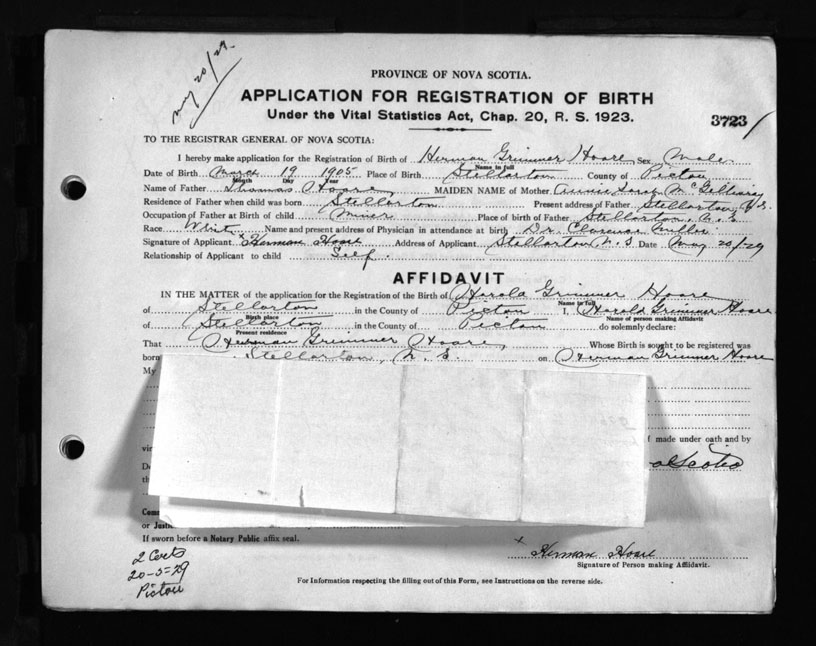 may 20/29.
PROVINCE OF NOVA SCOTIA.
APPLICATION FOR REGISTRATION OF BIRTH
Under the Vital Statistics Act, Chap. 20, R. S. 1923.
3723
TO THE REGISTRAR GENERAL OF NOVA SCOTIA:
I hereby make application for the Registration of Birth of Herman Grimmer Hoare Sex Male
Name in full
Date of Birth March 19 1905 Place of Birth Stellarton County of Pictou
Month Day Year
Name of Father Thomas Hoare MAIDEN NAME of Mother Annie
Residence of Father when child was born Stellarton Present address of Father Stellarton, N.S.
Occupation of Father at Birth of child Miner Place of birth of Father Stellarton, N.S.
Race White Name and present address of Physician in attendance at birth Dr. Clarence Miller
Signature of Applicant x Herman Hoare Address of Applicant Stellarton, N.S. Date May 20/-29
Relationship of Applicant to child Self.
AFFIDAVIT
IN THE MATTER of the application for the Registration of the Birth of Harold Grimmer Hoare
Name in full
of Stellarton in the County of Pictou I, Harold Grimmer Hoare
Birth place Name of person making Affidavit
of Stellarton in the County of Pictou do solemnly declare:
Present residence
That Herman Grimmer Hoare, Whose Birth is sought to be registered was
born Stellarton, N.S. on Herman Grimmer Hoare
My
if made under oath and by
Scotia
or
If sworn before a Notary Public affix seal.
x Herman Hoare
Signature of Person making Affidavit.
2 Certs
20-5-29
Pictou
For Information respecting the filling out of this Form, see Instructions on the reverse side.